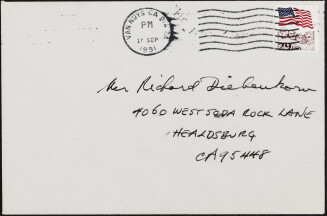 VAN NUYS CA
PM
17 SEP
1991
29
Mr Richard Diebenkorn
4060 WEST SODA ROCK LANE
HEALDSBURG
CA 95448